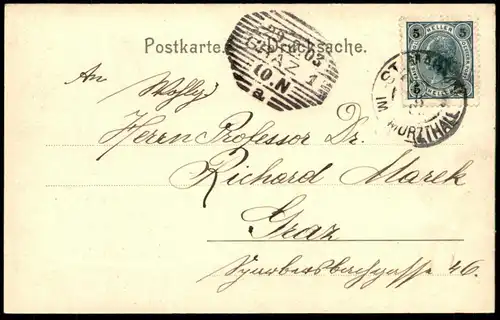 Postkarte. Drucksache.
03
GRAZ 1
10.N
a
5 HELLER 5
5 HELLER 5
ST.
IM MÜRZTHALE
An Wohlg.
Herrn Professor Dr.
Richard Marek
Graz
46.